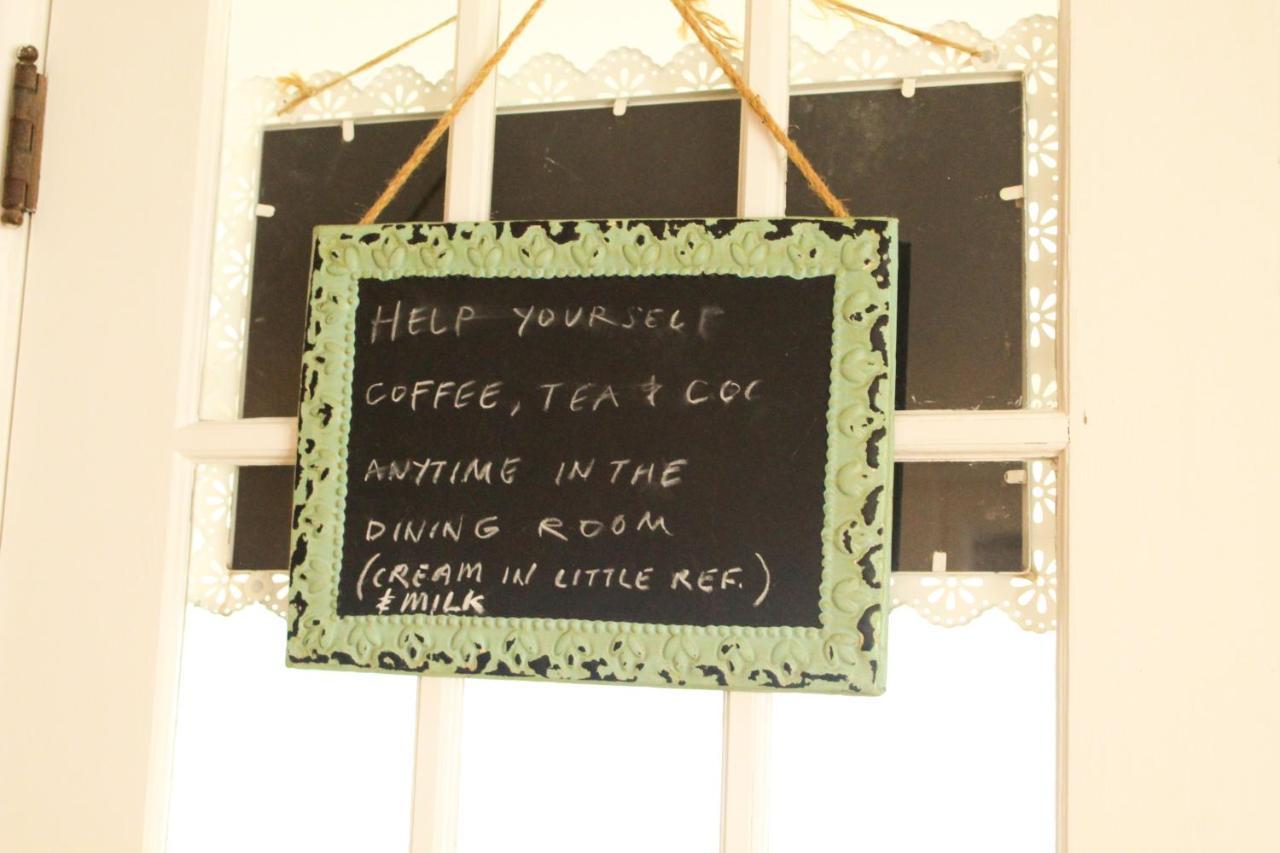 HELP YOURSELF
COFFEE, TEA & COC
ANYTIME IN THE
DINING ROOM
(CREAM IN LITTLE REF.)
& MILK